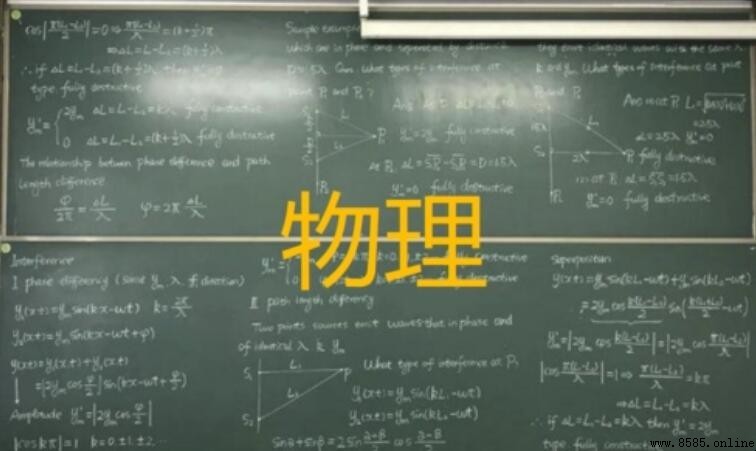 cos|π(L₁-L₂)/2|=0⇒π(L₁-L₂)/λ=(k+½)π
⇒ΔL=L₁-L₂=(k+½)λ
∴if ΔL=L₁-L₂=(k+½)λ then
type fully destructive
2ym ΔL=L₁-L₂=kλ fully constructive
0 ΔL=L₁-L₂=(k+½)λ fully destructive
The relationship between phase difference and path
length difference
φ/2π=ΔL/λ φ=2πΔL/λ
Sample example
Which are in phase and separated by distance
D=1.5λ What types of interference at
point P₁ and P₂?
S₁
S₂
L₁
L₂
P₁
P₂
y'm=2ym fully constructive
At P₂ ΔL=S₁P₂-S₂P₂=D=1.5λ
y'm=0 fully destructive
they emit identical waves with the same λ
k and ym. What types of interference at point
P₁ and P₂
=2.5λ
S₂
2λ
P₁
P₂
fully destructive
(2) at P₂ ΔL=S₁S₂=1.5λ
y'm=0 fully destructive
物理
Interference
I phase differency (same ym λ direction)
y₁(x,t)=ym sin(kx-wt) k=2π/λ
y₂(x,t)=ym sin(kx-wt+φ)
y(x,t)=y₁(x,t)+y₂(x,t)
=|2ym cos φ/2| sin(kx-wt+φ/2)
Amplitude y'm=|2ym cos φ/2|
|cos kπ|=1 k=0,±1,±2...
fully constructive
fully destructive
II path length differency
Two points sources emit waves that in phase and
of identical λ k ym
S₁
L₁
P
L₂
S₂
What type of interference at P?
y₁(x,t)=ym sin(kL₁-wt)
y₂(x,t)=ym sin(kL₂-wt)
Superposition
y(x,t)=ym sin(kL₁-wt)+ym sin(kL₂-wt)
=2ym cos k(L₁-L₂)/2 sin(k(L₁+L₂)/2-wt)
y'm=|2ym cos k(L₁-L₂)/2|=|2ym cos π(L₁-L₂)/λ|
|cos π(L₁-L₂)/λ|=1⇒π(L₁-L₂)/λ=kπ
⇒ΔL=L₁-L₂=kλ
∴if ΔL=L₁-L₂=kλ then y'm=2ym
type fully constructive
www.8585.online